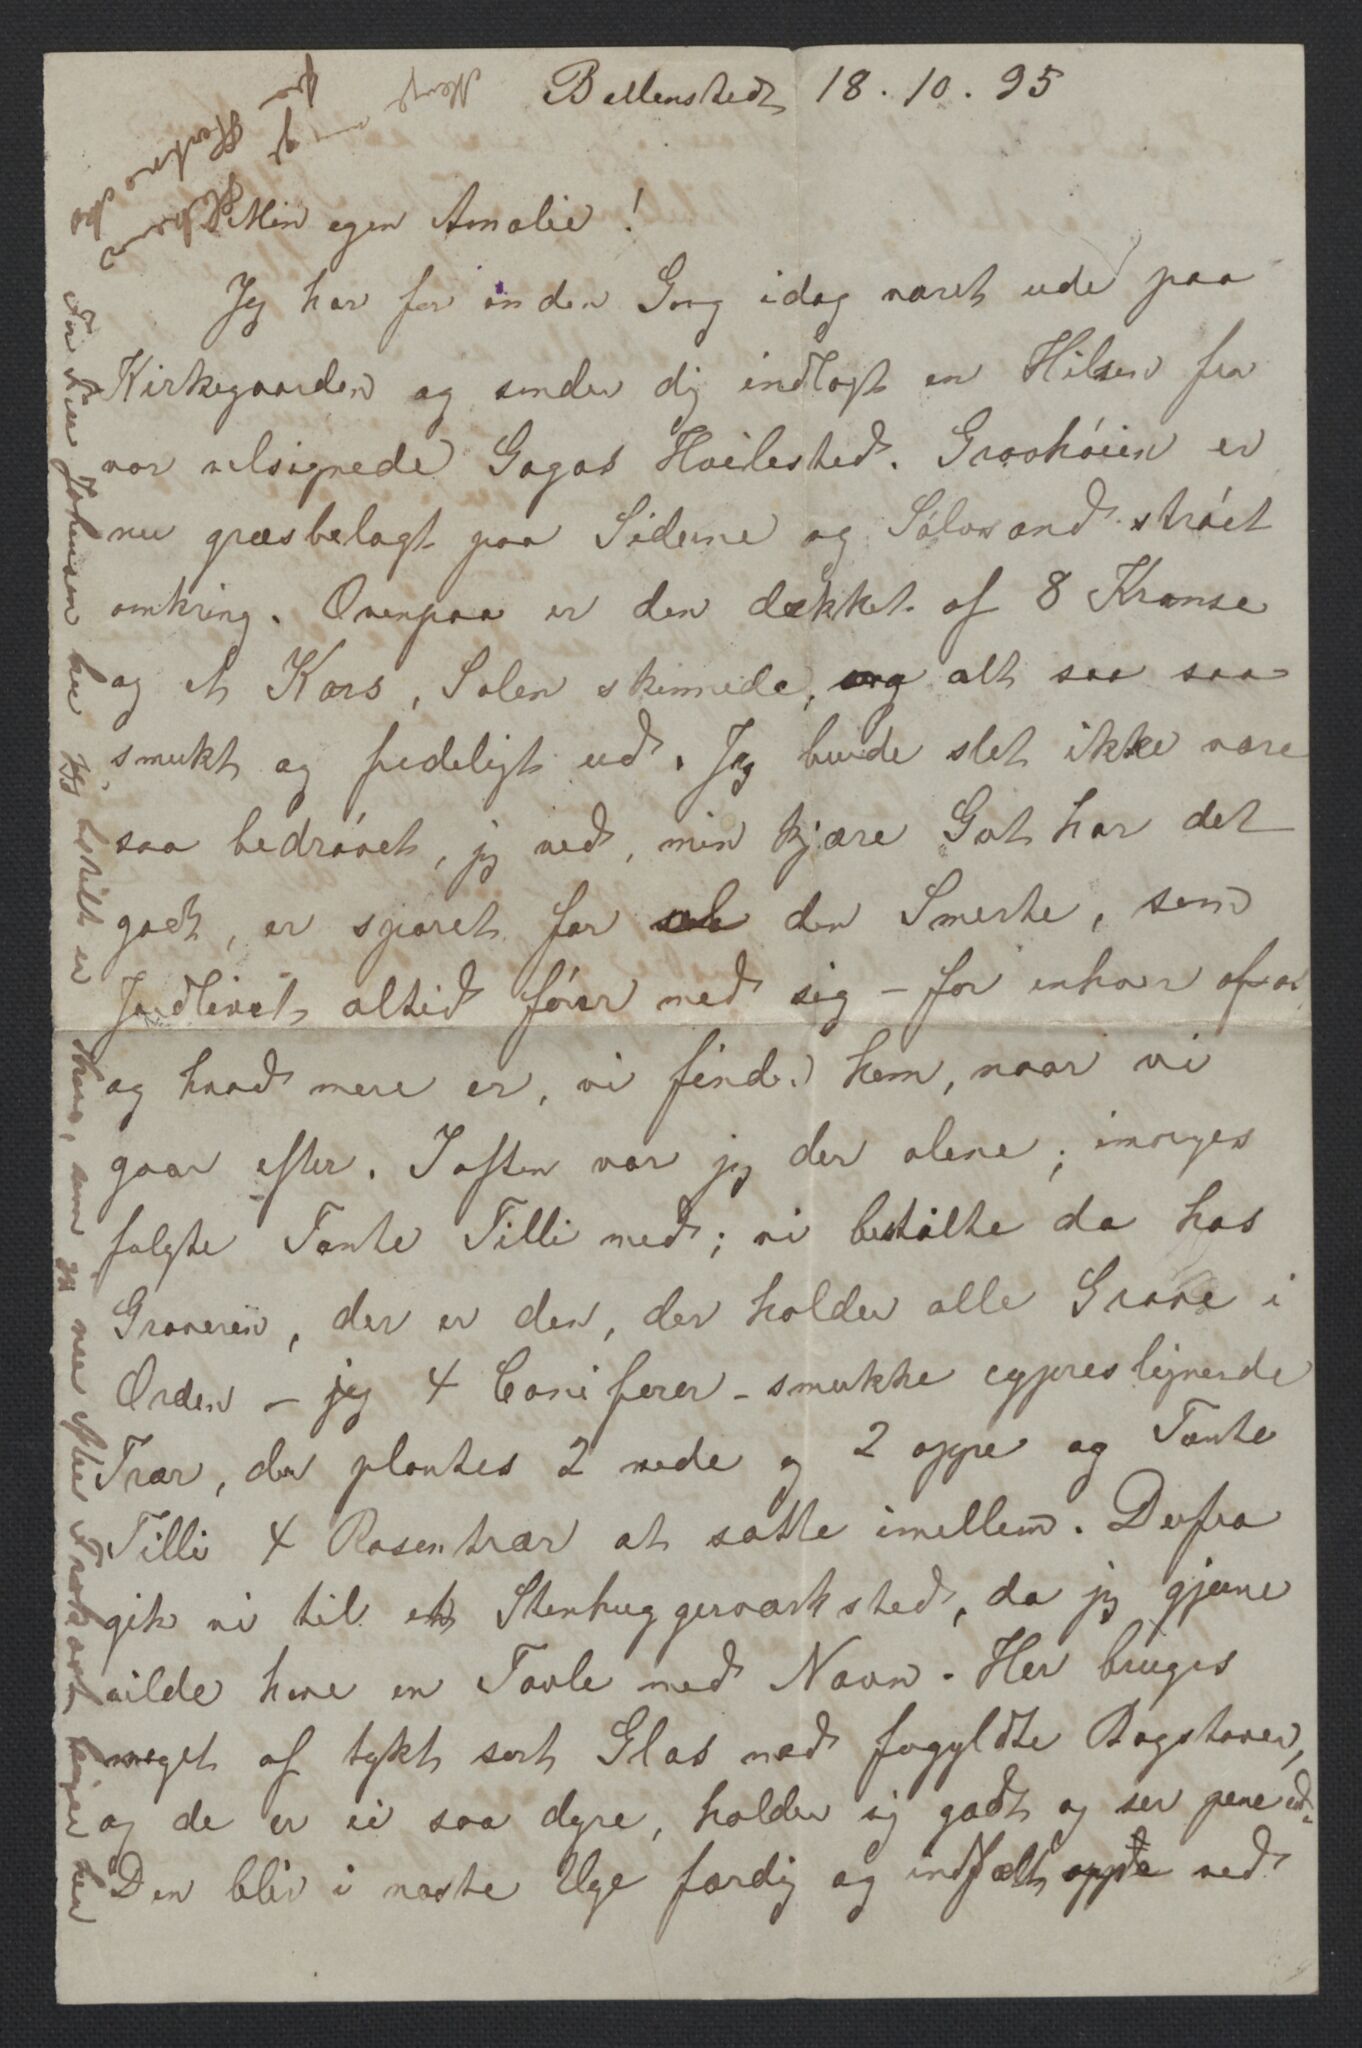 Ballenstedt 18.10.95
Min egen Amalie!
Jeg har for anden Gang idag været ude paa
Kirkegaarden og sender dig indlagt en Hilsen fra
vor velsignede Gogos Hvilested. Gravhøien er
nu græsbelagt paa Siderne og Sølvsand strøet
omkring. Ovenpaa er den dækket af 8 Kranse
og et Kors, Solen skinnede, og alt saa saa
smukt og fredeligt ud. Jeg burde slet ikke være
saa bedrøvet, jeg ved, min kjære Gut har det
godt, er sparet for den Smerte, som
Jordlivet altid fører med sig – for enhver af os
og hvad mere er, vi finder ham, naar vi
gaar efter. Iaften var jeg der alene; imorges
fulgte Tante Tilli med; vi bestilte da hos
Graveren, der er den, der holder alle Grave i
Orden – jeg 4 Coniferer – smukke cypreslignende
Trær, der plantes 2 nede og 2 oppe og Tante
Tilli 4 Rosentrær at sætte imellem. Derfra
gik vi til et Stenhuggerværksted, da jeg gjerne
vilde have en Tavle med Navn. Her bruges
meget af tykt sort Glas med forgyldte Bogstaver,
og de er ei saa dyre, holder sig godt og ser pene ud.
Den bliv i næste Uge færdig og indfældt oppe ved